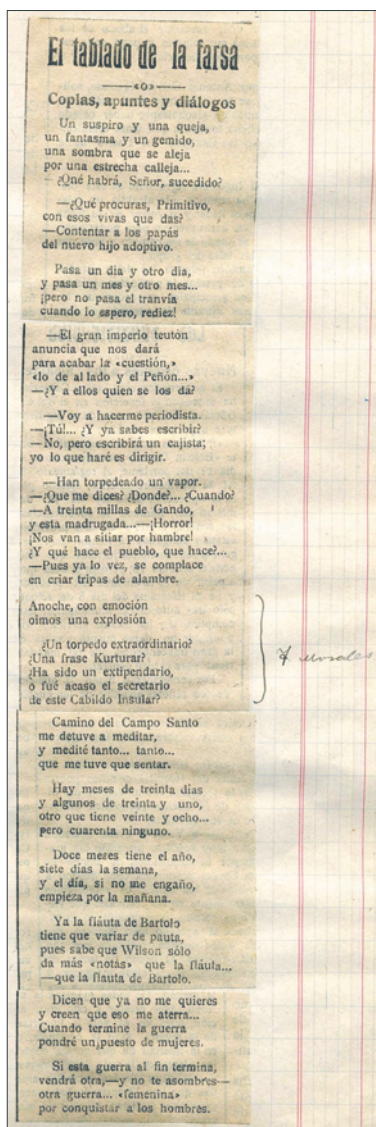 El tablado de la farsa
«O»
Coplas, apuntes y diálogos
Un suspiro y una queja,
un fantasma y un gemido,
una sombra que se aleja
por una estrecha calleja...
—¿Qné habrá, Señor, sucedido?
—¿Qué procuras, Primitivo,
con esos vivas que das?
—Contentar a los papás
del nuevo hijo adoptivo.
Pasa un dia y otro dia,
y pasa un mes y otro mes...
¡pero no pasa el tranvía
cuando lo espero, rediez!
—El gran imperio teutón
anuncia que nos dará
para acabar la «cuestión,»
«lo de al lado y el Peñón...»
—¿Y a ellos quien se los da?
—Voy a hacerme periodista.
—¡Tú!... ¿Y ya sabes escribir?
—No, pero escribirá un cajista;
yo lo que haré es dirigir.
—Han torpedeado un vapor.
—¿Que me dices? ¿Donde?... ¿Cuando?
—A treinta millas de Gando,
y esta madrugada...—¡Horror!
¡Nos van a sitiar por hambre!
¿Y qué hace el pueblo, que hace?...
—Pues ya lo vez, se complace
en criar tripas de alambre.
Anoche, con emoción
oimos una explosión
¿Un torpedo extraordinario?
¿Una frase Kurturar?
¿Ha sido un extipendario,
o fué acaso el secretario
de este Cabildo Insular?
Camino del Campo Santo
me detuve a meditar,
y medité tanto... tanto...
que me tuve que sentar.
Hay meses de treinta días
y algunos de treinta y uno,
otro que tiene veinte y ocho...
pero cuarenta ninguno.
Doce meses tiene el año,
siete días la semana,
y el día, si no me engaño,
empieza por la mañana.
Ya la fláuta de Bartolo
tiene que variar de pauta,
pues sabe que Wilson sólo
da más «notas» que la fláuta...
—que la flauta de Bartolo.
Dicen que ya no me quieres
y creen que eso me aterra...
Cuando termine la guerra
pondré un puesto de mujeres.
Si esta guerra al fin termina,
vendrá otra,—y no te asombres—
otra guerra... «femenina»
por conquistar a los hombres.